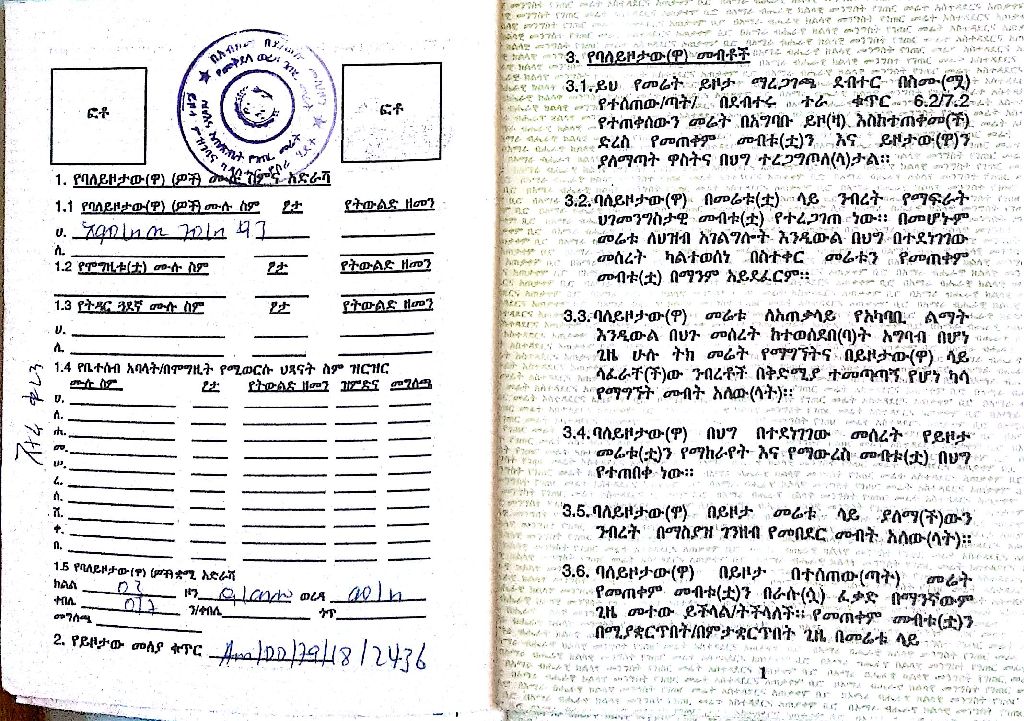 ፎቶ
ፎቶ
1. የባለይዞታው(ዋ) (ዎች) ሙሉ ስምና አድራሻ
1.1 የባለይዞታው(ዋ) (ዎች) ሙሉ ስም ፆታ የትውልድ ዘመን
ሀ.
ለ.
1.2 የሞግዚቱ(ቷ) ሙሉ ስም ፆታ የትውልድ ዘመን
1.3 የትዳር ጓደኛ ሙሉ ስም ፆታ የትውልድ ዘመን
ሀ.
ለ.
1.4 የቤተሰብ አባላት/በሞግዚት የሚወርሱ ህጻናት ስም ዝርዝር
ሙሉ ስም ፆታ የትውልድ ዘመን ዝምድና መግለጫ
ሀ.
ለ.
ሐ.
መ.
ሠ.
ረ.
ሰ.
ሸ.
ቀ.
በ.
1.5 የባለይዞታው(ዋ) (ዎች) ቋሚ አድራሻ
ክልል 03 ዞን ወረዳ
ቀበሌ ን/ቀበሌ ጎጥ
መግለጫ
2. የይዞታው መለያ ቁጥር Am/00/79/18/2436
3. የባለይዞታው(ዋ) መብቶች
3.1. ይህ የመሬት ይዞታ ማረጋገጫ ደብተር በስሙ(ሟ)
የተሰጠው/ጣት/ በደብተሩ ተራ ቁጥር 6.2/7.2
የተጠቀሰውን መሬት በአግባቡ ይዞ(ዛ) እስከተጠቀመ(ች)
ድረስ የመጠቀም መብቱ(ቷ)ን እና ይዞታው(ዋ)ን
ያለማጣት ዋስትና በህግ ተረጋግጦለ(ላ)ታል።
3.2. ባለይዞታው(ዋ) በመሬቱ(ቷ) ላይ ንብረት የማፍራት
ህገመንግስታዊ መብቱ(ቷ) የተረጋገጠ ነው። በመሆኑም
መሬቱ ለህዝብ አገልግሎት እንዲውል በህግ በተደነገገው
መሰረት ካልተወሰነ በስተቀር መሬቱን የመጠቀም
መብቱ(ቷ) በማንም አይደፈርም።
3.3. ባለይዞታው(ዋ) መሬቱ ለአጠቃላይ የአካባቢ ልማት
እንዲውል በህጉ መሰረት ከተወሰደበ(ባ)ት አግባብ በሆነ
ጊዜ ሁሉ ትክ መሬት የማግኘትና በይዞታው(ዋ) ላይ
ላፈራቸ(ች)ው ንብረቶች በቅድሚያ ተመጣጣኝ የሆነ ካሳ
የማግኘት መብት አለው(ላት)።
3.4. ባለይዞታው(ዋ) በህግ በተደነገገው መሰረት የይዞታ
መሬቱ(ቷ)ን የማከራየት እና የማውረስ መብቱ(ቷ) በህግ
የተጠበቀ ነው።
3.5. ባለይዞታው(ዋ) በይዞታ መሬቱ ላይ ያለማ(ች)ውን
ንብረት በማስያዝ ገንዘብ የመበደር መብት አለው(ላት)።
3.6. ባለይዞታው(ዋ) በይዞታ በተሰጠው(ጣት) መሬት
የመጠቀም መብቱ(ቷ)ን በራሱ(ሷ) ፈቃድ በማንኛውም
ጊዜ መተው ይችላል/ትችላለች። የመጠቀም መብቱ(ቷ)ን
በሚያቋርጥበት/በምታቋርጥበት ጊዜ በመሬቱ ላይ
1